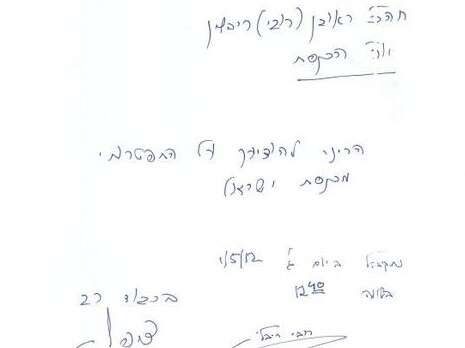 חה"כ ראובן (רובי) ריבלין
יו"ר הכנסת
הריני להודיעך על התפטרותי
מכנסת ישראל
נתקבל ביום ג' 1/5/12
בשעה 12 40
בכבוד רב
רובי ריבלין